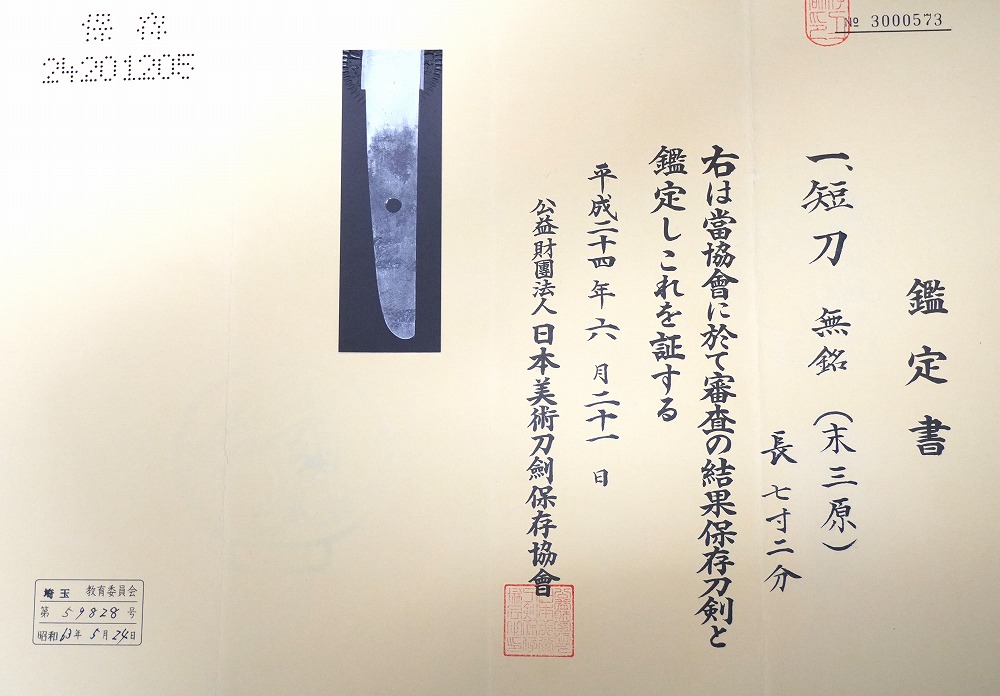 № 3000573
鑑定書
一、短刀 無銘 (末三原)
長 七寸二分
右は當協會に於て審査の結果保存刀剣と
鑑定しこれを証する
平成二十四年六月二十一日
公益財團法人日本美術刀劍保存協會
保存
24201205
埼玉 教育委員会
第 59828 号
昭和63年5月24日